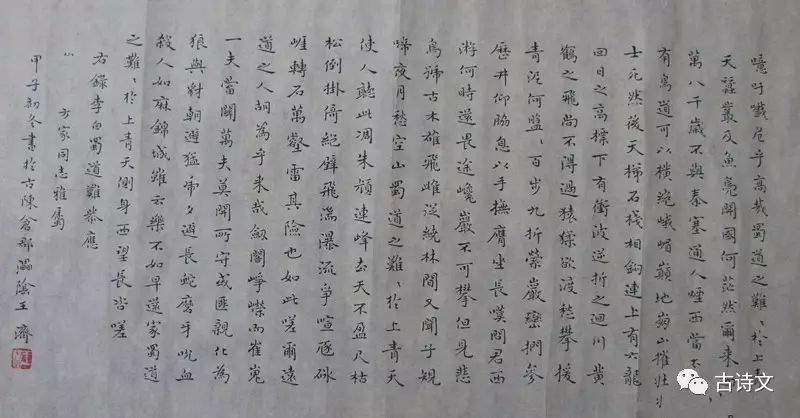 噫吁嚱危乎高哉蜀道之難〻於上青
天蠶叢及魚鳧開國何茫然爾來
萬八千歲不與秦塞通人煙西當太
有鳥道可以橫絕峨嵋巔地崩山摧壯
士死然後天梯石棧相鈎連上有六龍
回日之高標下有衝波逆折之迴川黃
鶴之飛尚不得過猿猱欲渡愁攀援
青泥何盤〻百步九折縈巖巒捫參
歷井仰脇息以手撫膺坐長嘆問君西
遊何時還畏途巉巖不可攀但見悲
鳥號古木雄飛雌從繞林間又聞子規
啼夜月愁空山蜀道之難〻於上青天
使人聽此凋朱顏連峰去天不盈尺枯
松倒掛倚絕壁飛湍瀑流爭喧豗砯
崖轉石萬壑雷其險也如此嗟爾遠
道之人胡為乎來哉劍閣崢嶸而崔嵬
一夫當關萬夫莫開所守或匪親化為
狼與豺朝避猛虎夕避長蛇磨牙吮血
殺人如麻錦城雖云樂不如早還家蜀道
之難〻於上青天側身西望長咨嗟
右錄李白蜀道難恭應
方家同志雅屬
甲子初冬書於古陳倉郡陰王濟
古诗文